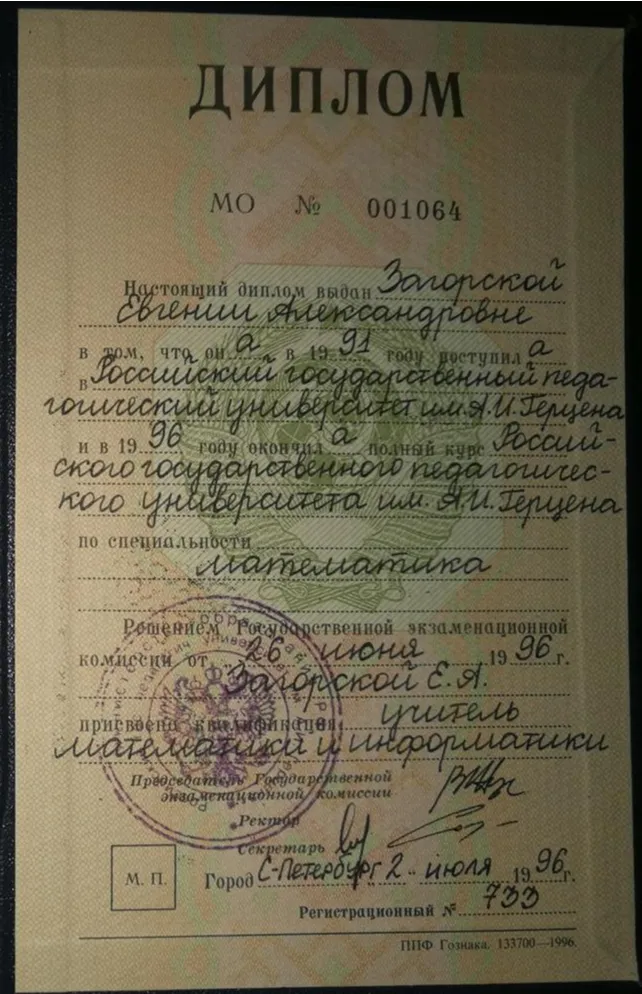 ДИПЛОМ
МО № 001064
Настоящий диплом выдан Загорской
Евгении Александровне
в том, что он а в 1991 году поступил а
в Российский государственный педа-
гогический университет им. А.И. Герцена
и в 1996 году окончил а полный курс Россий-
ского государственного педагогичес-
кого университета им. А.И. Герцена
по специальности
математика
Решением Государственной экзаменационной
комиссии от "26" июня 1996 г.
Загорской Е.А.
присвоена квалификация учитель
математики и информатики
Председатель Государственной
экзаменационной комиссии
Ректор
Секретарь
М. П.
Город С-Петербург 2 июля 1996 г.
Регистрационный № 733
ППФ Гознака. 133700—1996.